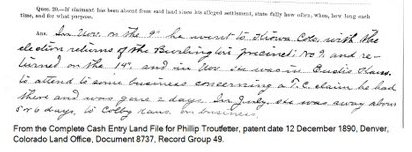 Ques. 20.—If claimant has been absent from said land since his alleged settlement, state fully how often, when, how long each
time, and for what purpose.
Ans. In Nov. on the 9" he went to Kiowa Colo. with the
election returns of the Burlington Precinct No 9, and re-
turned on the 14", and in Nov he was in Eustis Kans.
to attend to some business concerning a T.C. claim he had
there and was gone 2 days. In July, he was away about
5 or 6 days, to Colby Kans. on business.
From the Complete Cash Entry Land File for Phillip Troutfetter, patent date 12 December 1890, Denver,
Colorado Land Office, Document 8737, Record Group 49.